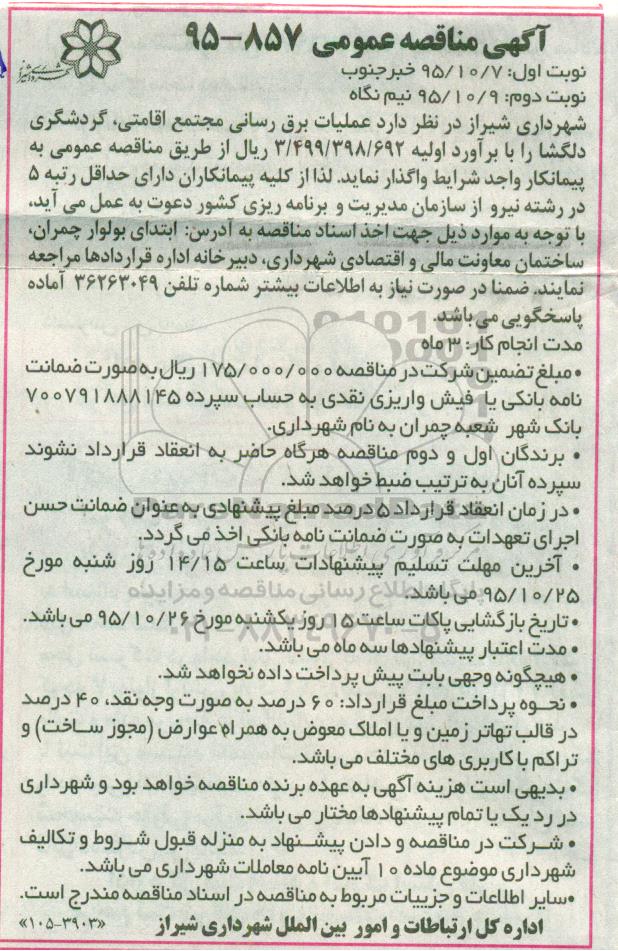 آگهی مناقصه عمومی ۸۵۷-۹۵
نوبت اول: ۹۵/۱۰/۷ خبرجنوب
نوبت دوم: ۹۵/۱۰/۹ نیم نگاه
شهرداری شیراز در نظر دارد عملیات برق رسانی مجتمع اقامتی، گردشگری
دلگشا را با برآورد اولیه ۳/۴۹۹/۳۹۸/۶۹۲ ریال از طریق مناقصه عمومی به
پیمانکار واجد شرایط واگذار نماید. لذا از کلیه پیمانکاران دارای حداقل رتبه ۵
در رشته نیرو از سازمان مدیریت و برنامه ریزی کشور دعوت به عمل می آید،
با توجه به موارد ذیل جهت اخذ اسناد مناقصه به آدرس: ابتدای بولوار چمران،
ساختمان معاونت مالی و اقتصادی شهرداری، دبیرخانه اداره قراردادها مراجعه
نمایند. ضمنا در صورت نیاز به اطلاعات بیشتر شماره تلفن ۳۶۲۶۳۰۴۹ آماده
پاسخگویی می باشد.
مدت انجام کار: ۳ ماه
• مبلغ تضمین شرکت در مناقصه ۱۷۵/۰۰۰/۰۰۰ ریال به صورت ضمانت
نامه بانکی یا فیش واریزی نقدی به حساب سپرده ۷۰۰۷۹۱۸۸۸۱۴۵
بانک شهر شعبه چمران به نام شهرداری.
• برندگان اول و دوم مناقصه هرگاه حاضر به انعقاد قرارداد نشوند
سپرده آنان به ترتیب ضبط خواهد شد.
• در زمان انعقاد قرارداد ۵ درصد مبلغ پیشنهادی به عنوان ضمانت حسن
اجرای تعهدات به صورت ضمانت نامه بانکی اخذ می گردد.
• آخرین مهلت تسلیم پیشنهادات ساعت ۱۴/۱۵ روز شنبه مورخ
۹۵/۱۰/۲۵ می باشد.
• تاریخ بازگشایی پاکات ساعت ۱۵ روز یکشنبه مورخ ۹۵/۱۰/۲۶ می باشد.
• مدت اعتبار پیشنهادها سه ماه می باشد.
• هیچگونه وجهی بابت پیش پرداخت داده نخواهد شد.
• نحوه پرداخت مبلغ قرارداد: ۶۰ درصد به صورت وجه نقد، ۴۰ درصد
در قالب تهاتر زمین و یا املاک معوض به همراه عوارض (مجوز ساخت) و
تراکم با کاربری های مختلف می باشد.
• بدیهی است هزینه آگهی به عهده برنده مناقصه خواهد بود و شهرداری
در رد یک یا تمام پیشنهادها مختار می باشد.
• شرکت در مناقصه و دادن پیشنهاد به منزله قبول شروط و تکالیف
شهرداری موضوع ماده ۱۰ آیین نامه معاملات شهرداری می باشد.
• سایر اطلاعات و جزییات مربوط به مناقصه در اسناد مناقصه مندرج است.
اداره کل ارتباطات و امور بین الملل شهرداری شیراز «۳۹۰۳-۱۰۵»